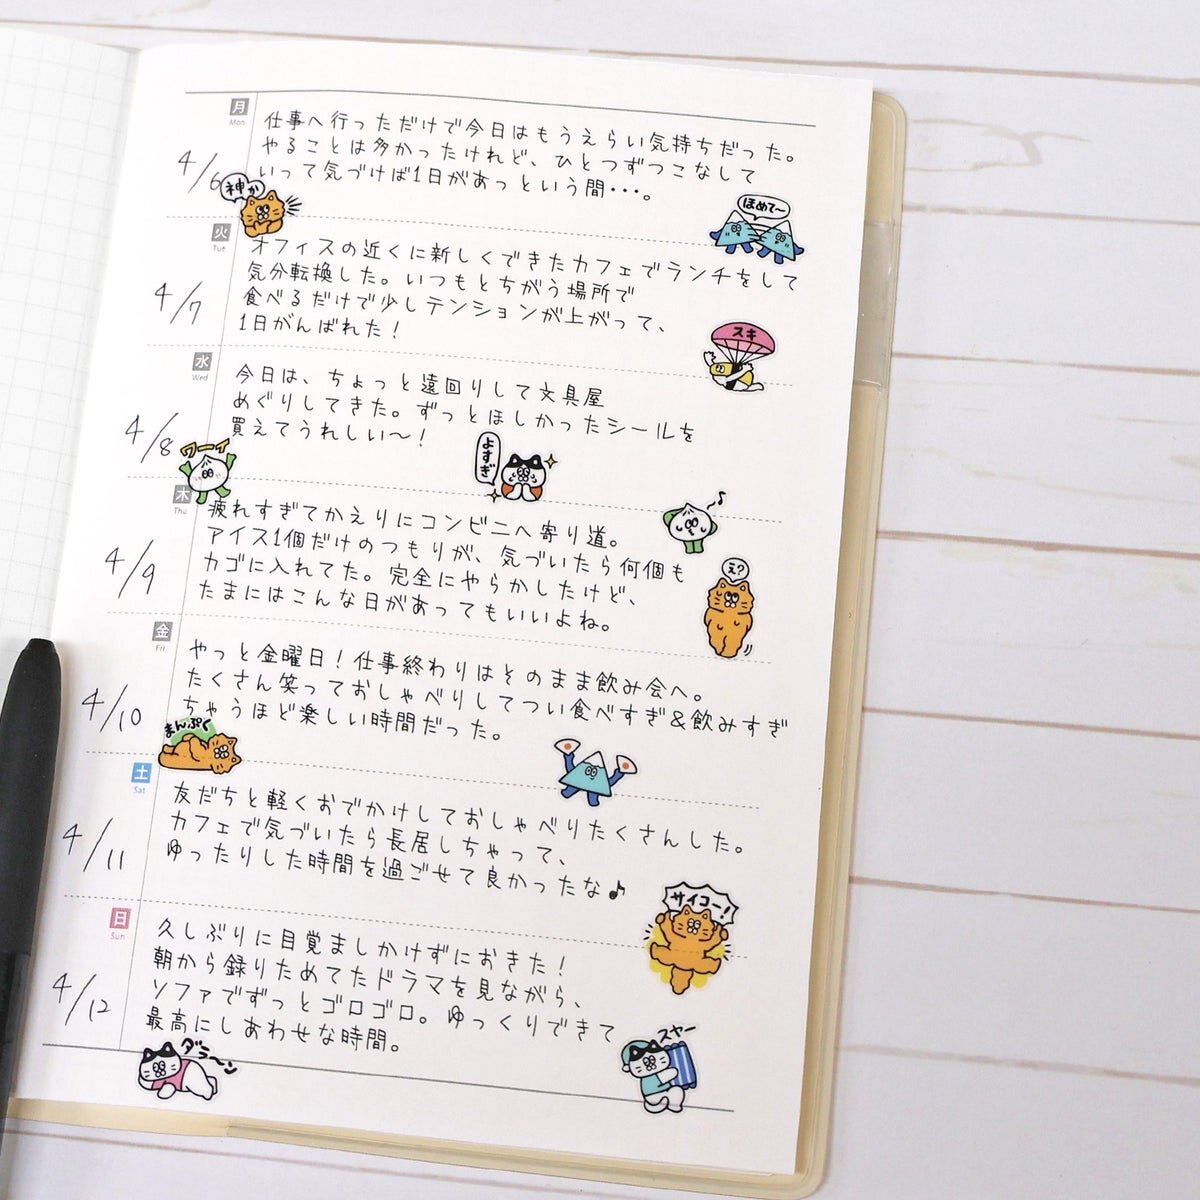 月
Mon
4/6
仕事へ行っただけで今日はもうえらい気持ちだった。
やることは多かったけれど、ひとつずつこなして
いって気づけば1日があっという間・・・。
神か
ほめて〜
火
Tue
4/7
オフィスの近くに新しくできたカフェでランチをして
気分転換した。いつもとちがう場所で
食べるだけで少しテンションが上がって、
1日がんばれた！
スキ
水
Wed
4/8
今日は、ちょっと遠回りして文具屋
めぐりしてきた。ずっとほしかったシールを
買えてうれしい〜！
ワーイ
よすぎ
木
Thu
4/9
疲れすぎてかえりにコンビニへ寄り道。
アイス1個だけのつもりが、気づいたら何個も
カゴに入れてた。完全にやらかしたけど、
たまにはこんな日があってもいいよね。
♪
え?
金
Fri
4/10
やっと金曜日！仕事終わりはそのまま飲み会へ。
たくさん笑っておしゃべりしてつい食べすぎ&飲みすぎ
ちゃうほど楽しい時間だった。
まんぷく
土
Sat
4/11
友だちと軽くおでかけしておしゃべりたくさんした。
カフェで気づいたら長居しちゃって、
ゆったりした時間を過ごせて良かったな♪
サイコー!
日
Sun
4/12
久しぶりに目覚ましかけずにおきた！
朝から録りためてたドラマを見ながら、
ソファでずっとゴロゴロ。ゆっくりできて
最高にしあわせな時間。
ダラ〜ン
スヤー